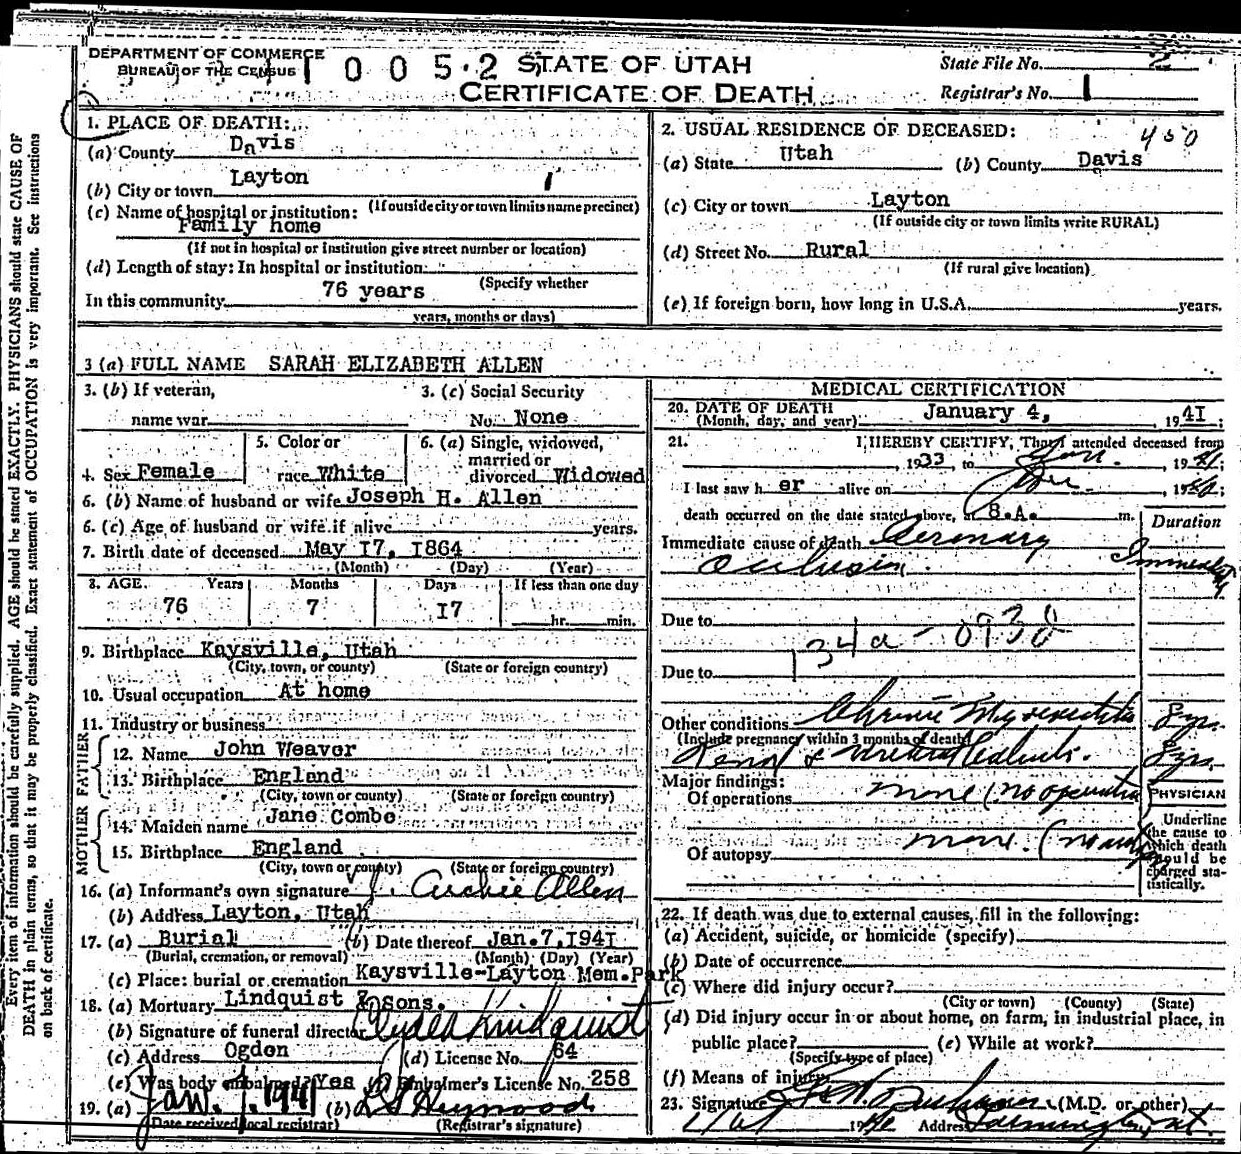 DEPARTMENT OF COMMERCE
BUREAU OF THE CENSUS
0 0 5 2 STATE OF UTAH
CERTIFICATE OF DEATH
State File No. 2
Registrar's No. 1
1. PLACE OF DEATH:
(a) County Davis
(b) City or town Layton
(If outside city or town limits name precinct)
(c) Name of hospital or institution:
Family home
(If not in hospital or institution give street number or location)
(d) Length of stay: In hospital or institution
(Specify whether
In this community 76 years
years, months or days)
2. USUAL RESIDENCE OF DECEASED: 450
(a) State Utah (b) County Davis
(c) City or town Layton
(If outside city or town limits write RURAL)
(d) Street No. Rural
(If rural give location)
(e) If foreign born, how long in U.S.A. years.
3 (a) FULL NAME SARAH ELIZABETH ALLEN
3. (b) If veteran,
name war
3. (c) Social Security
No. None
4. Sex Female
5. Color or
race White
6. (a) Single, widowed,
married or
divorced Widowed
6. (b) Name of husband or wife Joseph H. Allen
6. (c) Age of husband or wife if alive years.
7. Birth date of deceased May I7, I864
(Month) (Day) (Year)
8. AGE. Years Months Days If less than one day
76 7 I7 hr. min.
9. Birthplace Kaysville, Utah
(City, town, or county) (State or foreign country)
10. Usual occupation At home
11. Industry or business
FATHER
12. Name John Weaver
13. Birthplace England
(City, town or county) (State or foreign country)
MOTHER
14. Maiden name Jane Combe
15. Birthplace England
(City, town or county) (State or foreign country)
16. (a) Informant's own signature J. Archie Allen
(b) Address Layton, Utah
17. (a) Burial (b) Date thereof Jan. 7, I94I
(Burial, cremation, or removal) (Month) (Day) (Year)
(c) Place: burial or cremation Kaysville-Layton Mem. Park
18. (a) Mortuary Lindquist & sons.
(b) Signature of funeral director Lindquist
(c) Address Ogden (d) License No. 64
(e) Was body embalmed? Yes Embalmer's License No. 258
19. (a) Jan. 7. 1941 (b) Heywood
(Date received local registrar) (Registrar's signature)
MEDICAL CERTIFICATION
20. DATE OF DEATH
(Month, day, and year) January 4, 194I
21. I HEREBY CERTIFY, That I attended deceased from
1933, to Jan. 1941;
I last saw her alive on 19
death occurred on the date stated above, at 8.A. m.
Duration
Immediate cause of death Coronary
Occlusion.
Due to
134a - 0938
Due to
Other conditions Chronic Myocarditis yrs.
(Include pregnancy within 3 months of death)
yrs.
Major findings:
Of operations none (no operation
PHYSICIAN
Underline
the cause to
which death
should be
charged sta-
tistically.
Of autopsy none. (no
22. If death was due to external causes, fill in the following:
(a) Accident, suicide, or homicide (specify)
(b) Date of occurrence
(c) Where did injury occur?
(City or town) (County) (State)
(d) Did injury occur in or about home, on farm, in industrial place, in
public place? (e) While at work?
(Specify type of place)
(f) Means of injury
23. Signature (M.D. or other)
Address Farmington, Ut.
Every item of information should be carefully supplied. AGE should be stated EXACTLY. PHYSICIANS should state CAUSE OF
DEATH in plain terms, so that it may be properly classified. Exact statement of OCCUPATION is very important. See instructions
on back of certificate.